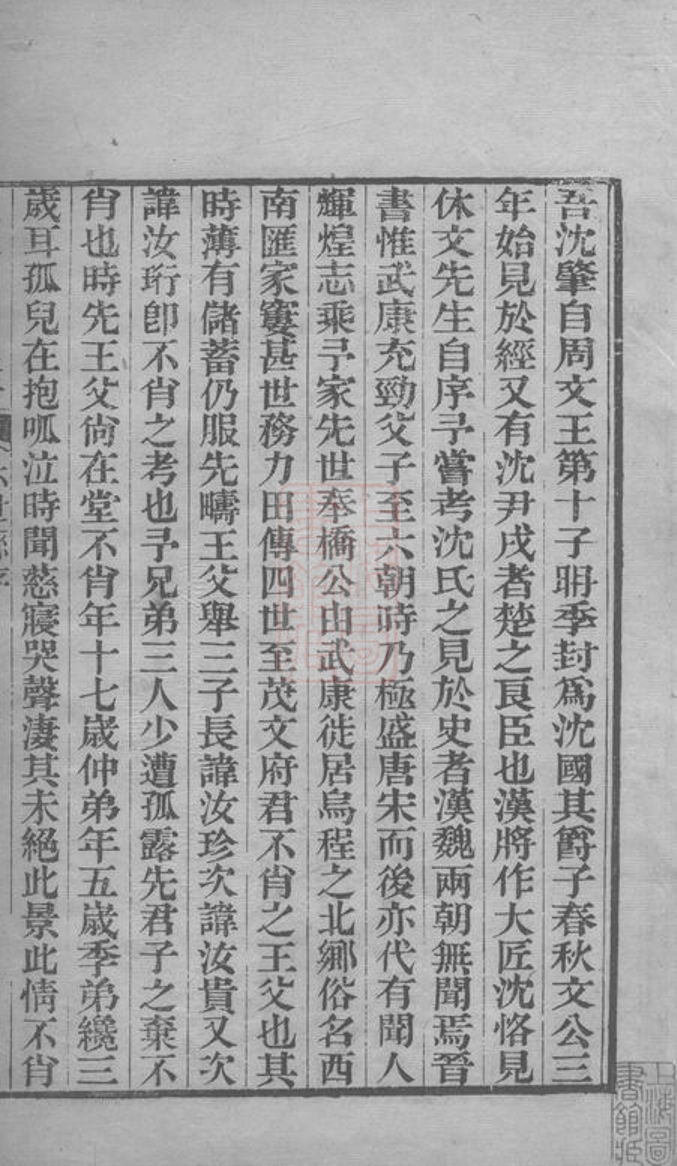 吾沈肇自周文王第十子冊季封爲沈國其爵子春秋文公三
年始見於經又有沈尹戌者楚之良臣也漢將作大匠沈恪見
休文先生自序予嘗考沈氏之見於史者漢魏兩朝無聞焉晉
書惟武康充勁父子至六朝時乃極盛唐宋而後亦代有聞人
輝煌志乘予家先世奉橋公由武康徙居烏程之北鄉俗名西
南匯家寠甚世務力田傳四世至茂文府君不肖之王父也其
時薄有儲蓄仍服先疇王父舉三子長諱汝珍次諱汝貴又次
諱汝珩卽不肖之考也予兄弟三人少遭孤露先君子之棄不
肖也時先王父尙在堂不肖年十七歲仲弟年五歲季弟纔三
歲耳孤兒在抱呱泣時聞慈寢哭聲淒其未絕此景此情不肖
上海圖書館藏